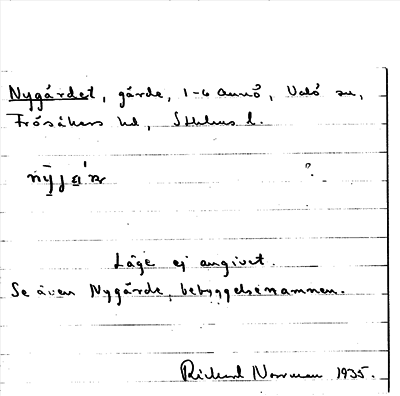 Nygärdet, gärde, 1-6 Aunö, Valö sn,
Frösåkers hd, Sthlms l.
?
Läge ej angivet.
Se även Nygärde, bebyggelsenamnen.
Richard Norrman 1935.